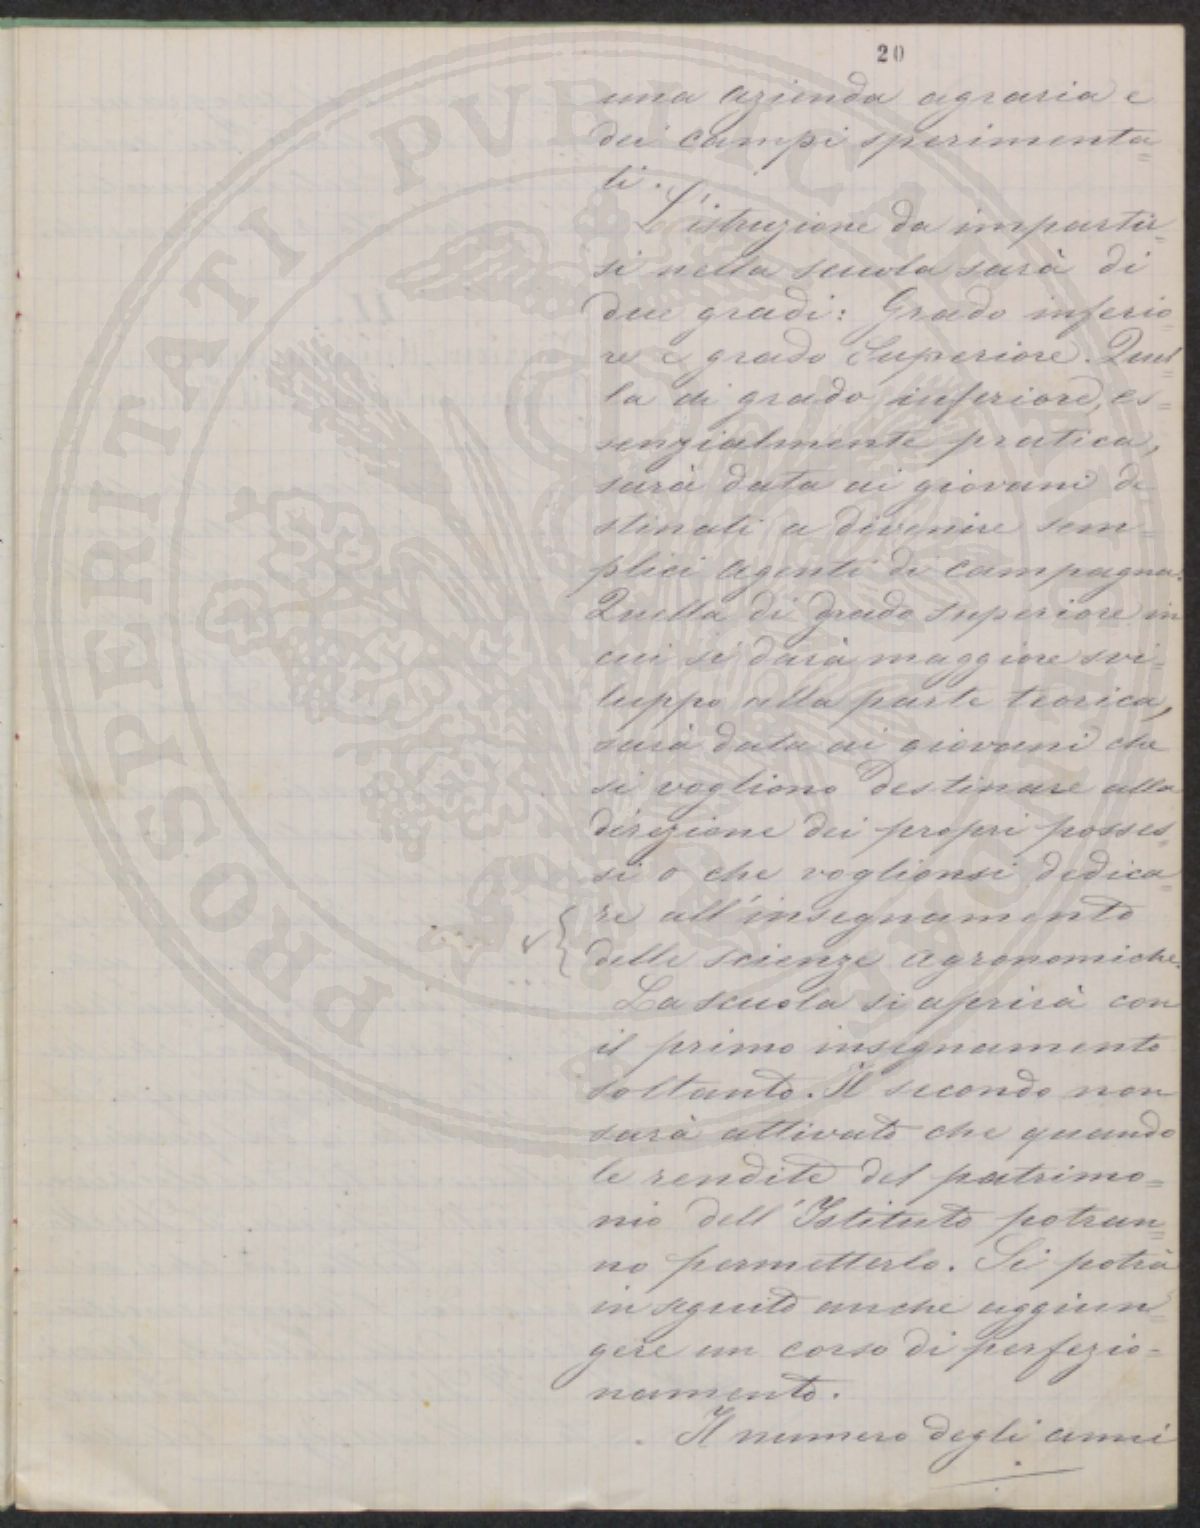 20
una azienda agraria e
dei campi sperimenta=
li.
L'istruzione da impartir=
si nella scuola sarà di
due gradi: Grado inferio=
re e grado Superiore. Quel=
la di grado inferiore, es=
senzialmente pratica,
sarà data ai giovani de
stinati a divenire sem=
plici agenti di campagna.
Quella di grado superiore in
cui si darà maggiore svi=
luppo alla parte teorica,
sarà data ai giovani che
si vogliono destinare alla
direzione dei propri posses=
si o che voglionsi dedica=
re all'insegnamento
delle scienze agronomiche.
La scuola si aprirà con
il primo insegnamento
soltanto. Il secondo non
sarà attivato che quando
le rendite del patrimo=
nio dell'Istituto potran=
no permetterlo. Si potrà
in seguito anche aggiun=
gere un corso di perfezio=
namento.
Il numero degli anni
PROSPERITATI PUBLICAE